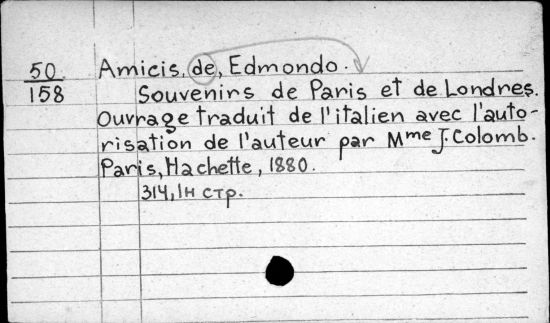 50 Amicis, de, Edmondo.
158 Souvenirs de Paris et de Londres.
Ouvrage traduit de l'italien avec l'auto-
risation de l'auteur par Mme J. Colomb.
Paris, Hachette, 1880.
314, 1н стр.